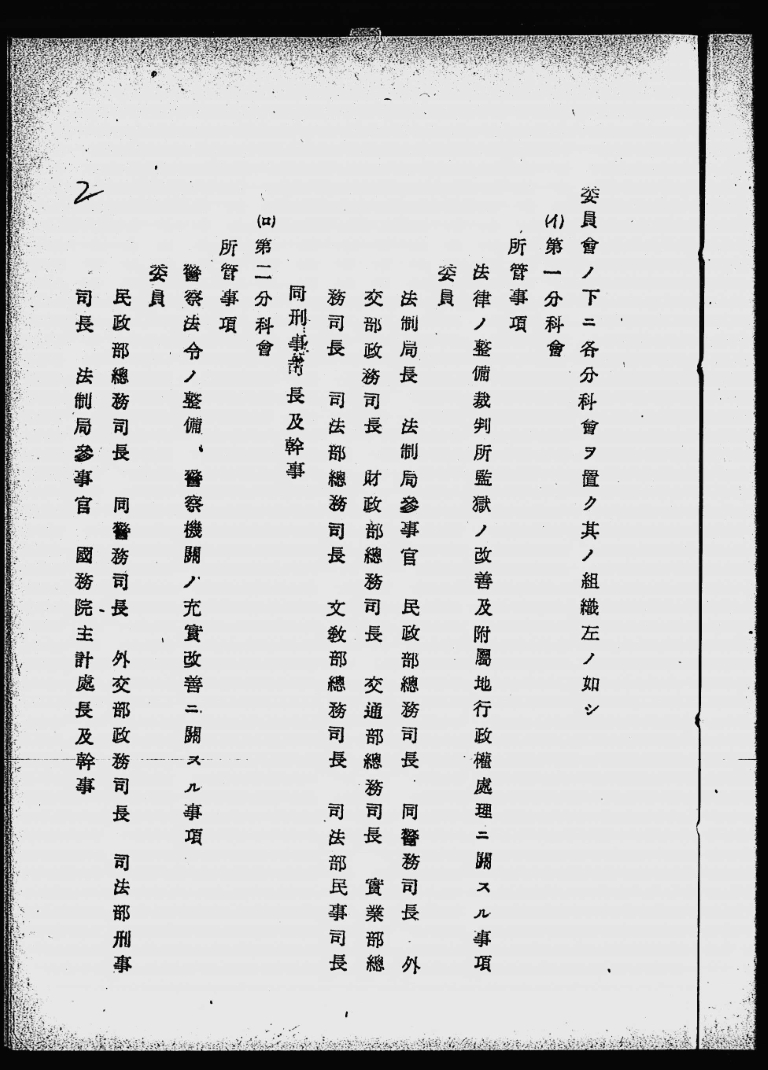 委員會ノ下ニ各分科會ヲ置ク其ノ組織左ノ如シ
(イ)第一分科會
所管事項
法律ノ整備裁判所監獄ノ改善及附屬地行政權處理ニ關スル事項
委員
法制局長 法制局參事官 民政部總務司長 同警務司長 外
交部政務司長 財政部總務司長 交通部總務司長 實業部總
務司長 司法部總務司長 文敎部總務司長 司法部民事司長
同刑事司長及幹事
(ロ)第二分科會
所管事項
警察法令ノ整備、警察機關ノ充實改善ニ關スル事項
委員
民政部總務司長 同警務司長 外交部政務司長 司法部刑事
司長 法制局參事官 國務院主計處長及幹事
2